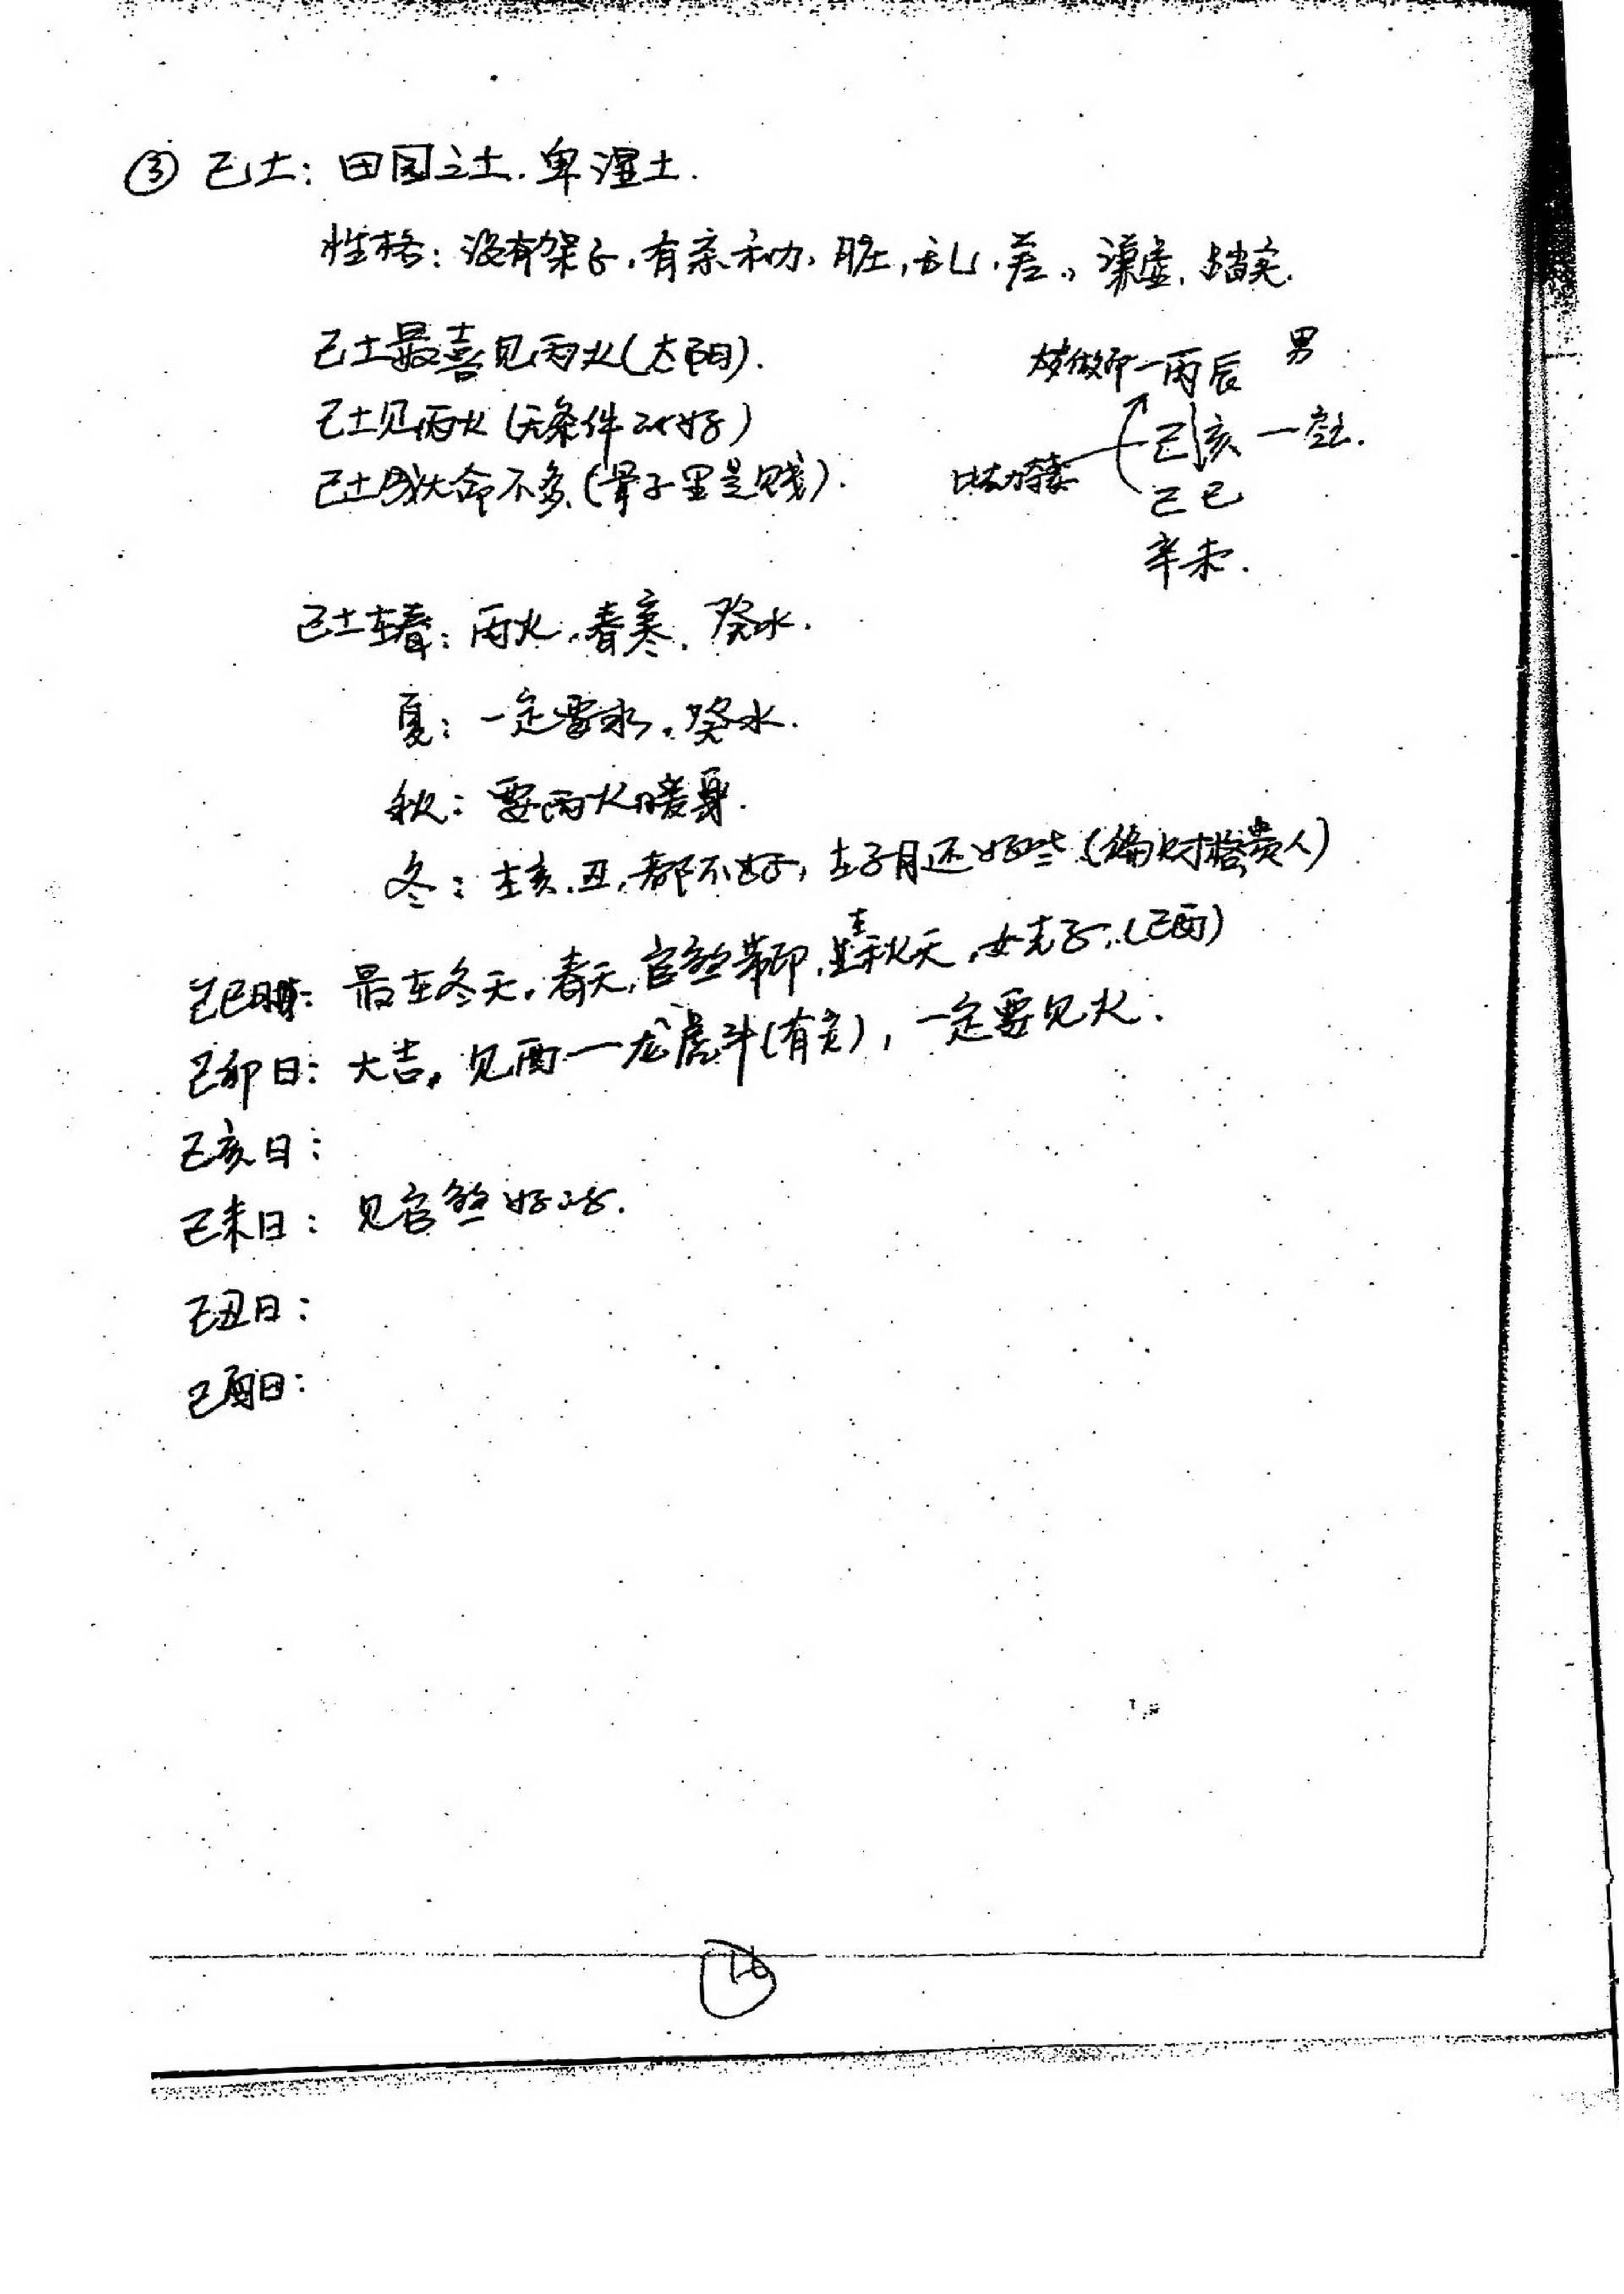 ③ 己土：田园之土.卑湿土.
性格：没有架子,有亲和力、脏,乱,差.,谦虚.踏实.
己土最喜见丙火(太阳).
己土见丙火(无条件 好)
己土成大命不多.(骨子里是贱).
丙辰 男
己亥 一
己巳
辛未.
己土生春：丙火,春寒.癸水.
夏：一定要水,癸水.
秋：要丙火暖身.
冬：生亥.丑,都不好,生子月还好些(偏财 贵人)
己巳日：最 生冬天.春天,官煞带印, 秋天,女克子,(己酉)
己卯日：大吉. 见酉一龙虎斗(有 ),一定要见火.
己亥日：
己未日：见官煞好
己丑日：
己酉日：